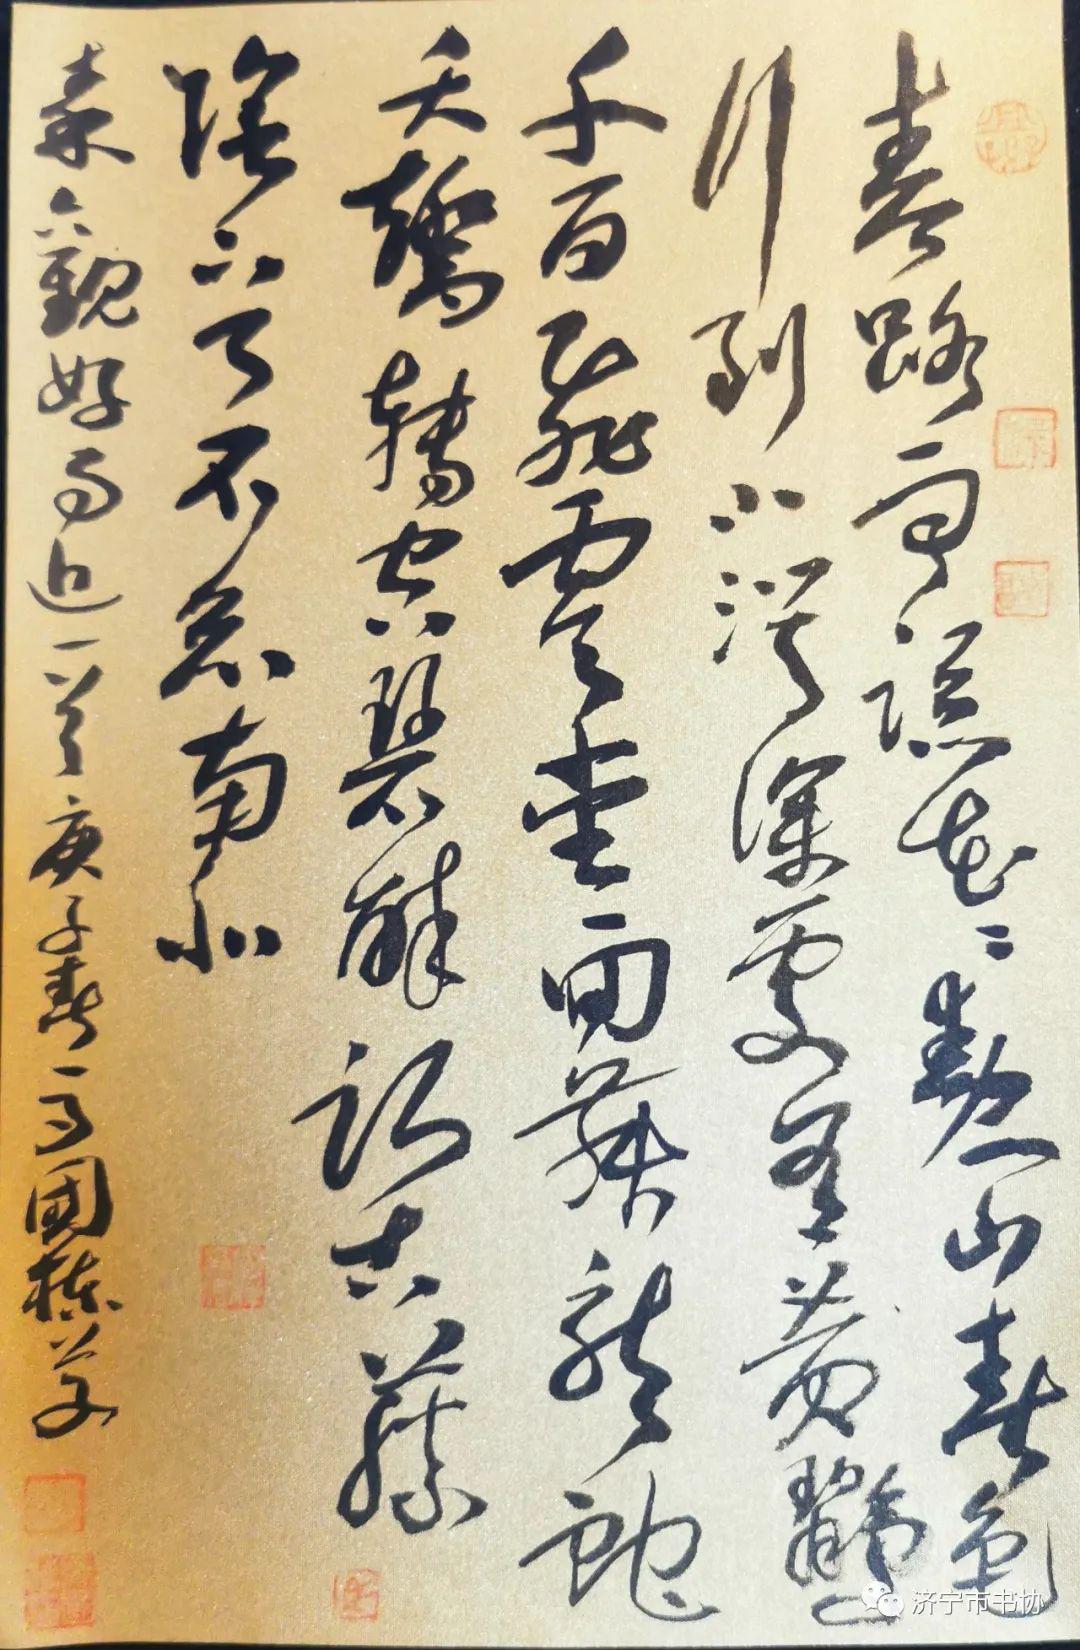 春路雨添花花動一山春色
行到小溪深處有黄鸝
千百飛雲當面舞龍蛇
夭矯轉空碧醉卧古藤
陰下了不知南北
秦觀好事近一首庚子春國棟草
济宁市书协